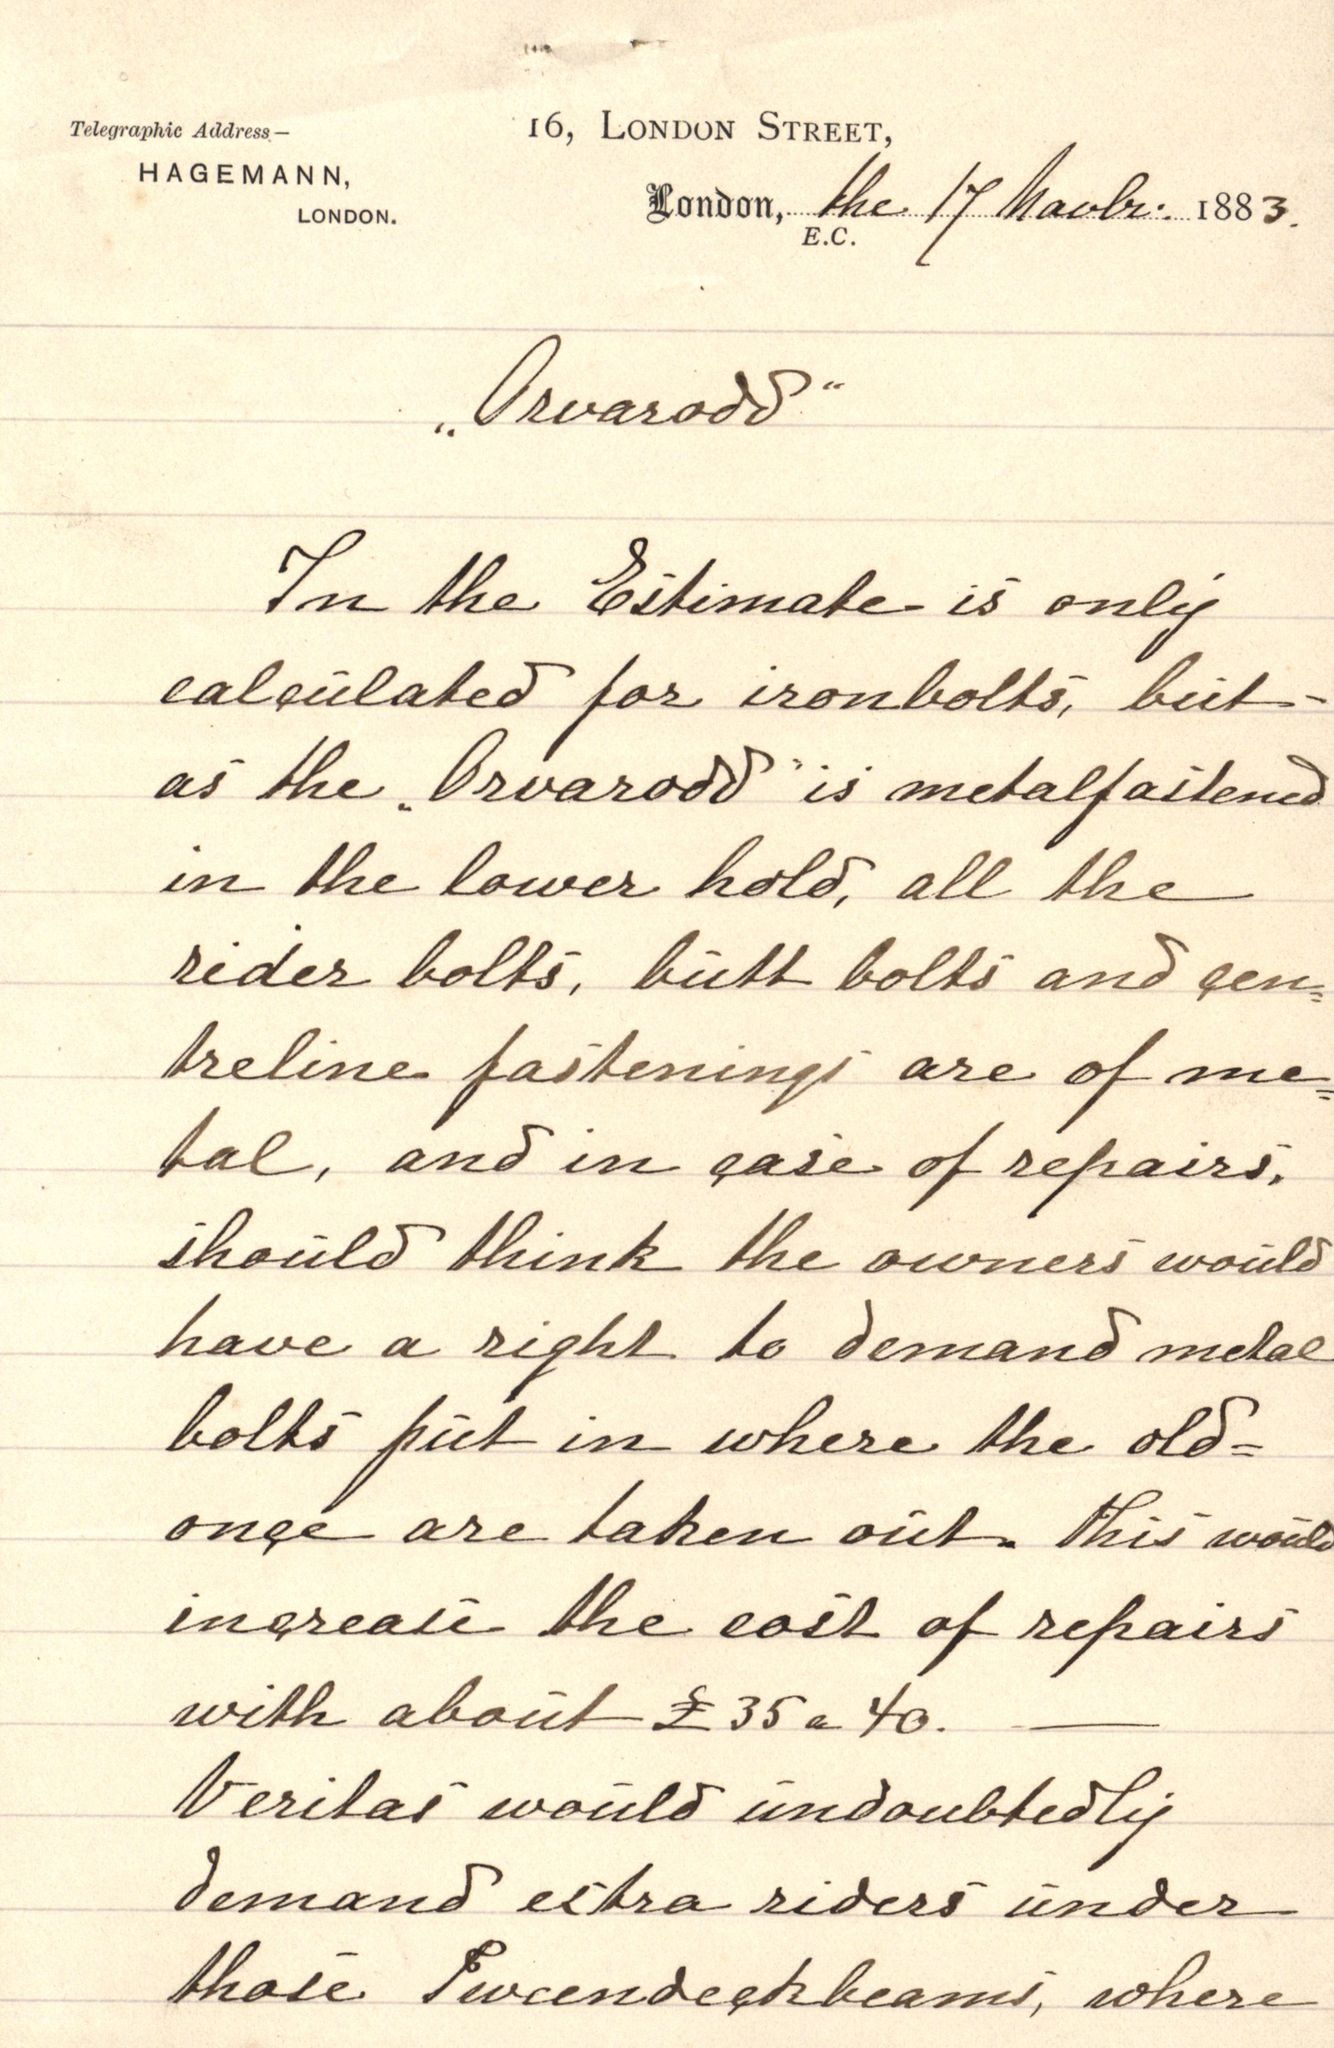 Telegraphic Address—
HAGEMANN,
LONDON.
16, LONDON STREET,
London, the 17 Novbr. 1883.
E.C.
„Orvarodd“
In the Estimate is only
calculated for ironbolts, but
as the „Orvarodd“ is metalfastened
in the lower hold, all the
rider bolts, butt bolts and cen=
treline fastenings are of me=
tal, and in case of repairs,
should think the owners would
have a right to demand metal
bolts put in where the old=
once are taken out. This would
increase the cost of repairs
with about £ 35 a 40. —
Veritas would undoubtedly
demand extra riders under
those Tweendeckbeams, where